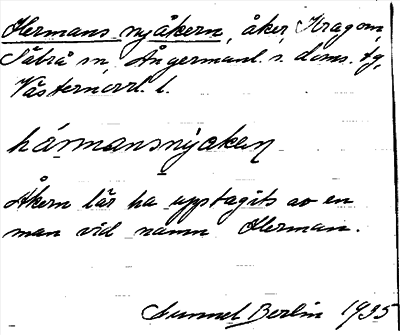 Hermans nyåkern, åker, Kragom,
Säbrå sn, Ångermanl. s. doms. tg,
Västernorrl. l.
hármansnýckan
Åkern lär ha upptagits av en
man vid namn Herman.
Sunnel Berlin 1935